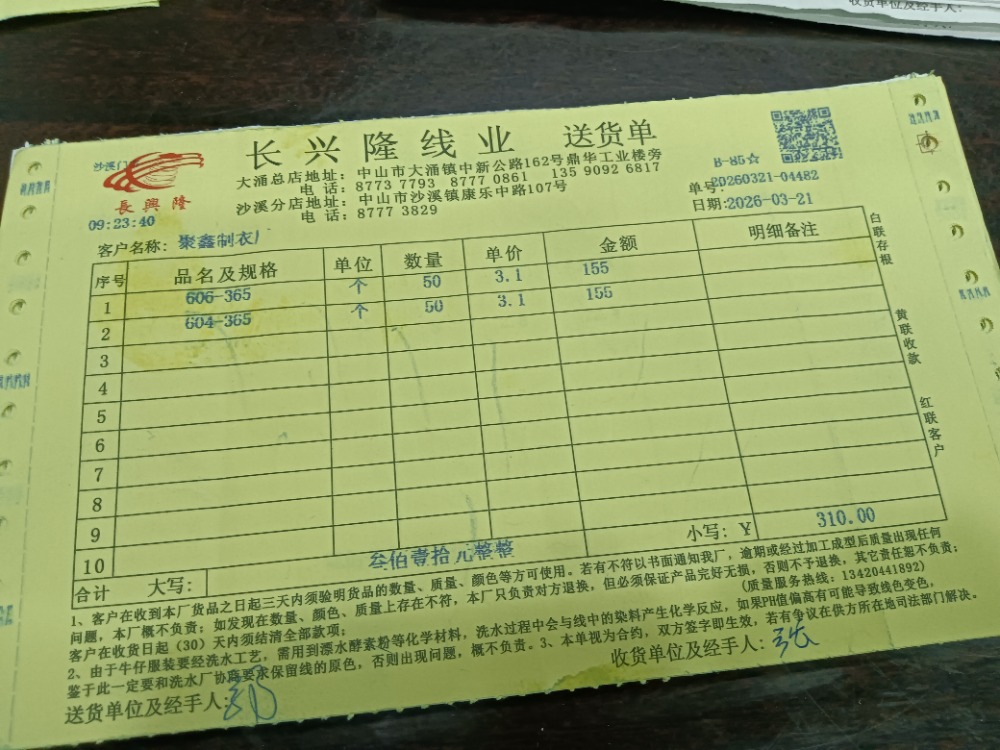 收货单位及经手人:
沙溪门
長興隆
长兴隆线业 送货单
大涌总店地址: 中山市大涌镇中新公路162号鼎华工业楼旁
电 话: 8773 7793 8777 0861 135 9092 6817
沙溪分店地址: 中山市沙溪镇康乐中路107号
电 话: 8777 3829
B-85☆
单号:20260321-04482
日期:2026-03-21
09:23:40
客户名称: 聚鑫制衣厂
序号 品名及规格 单位 数量 单价 金额 明细备注
1 606-365 个 50 3.1 155
2 604-365 个 50 3.1 155
3
4
5
6
7
8
9
10
合计 大写: 叁佰壹拾元整整 小写: ¥ 310.00
白联存根
黄联收款
红联客户
1、客户在收到本厂货品之日起三天内须验明货品的数量、质量、颜色等方可使用。若有不符以书面通知我厂，逾期或经过加工成型后质量出现任何
问题，本厂概不负责；如发现在数量、颜色、质量上存在不符，本厂只负责对方退换，但必须保证产品完好无损，否则不予退换，其它责任恕不负责；
客户在收货日起（30）天内须结清全部款项； (质量服务热线: 13420441892)
2、由于牛仔服装要经洗水工艺，需用到漂水酵素粉等化学材料，洗水过程中会与线中的染料产生化学反应，如果PH值偏高有可能导致线色变色，
鉴于此一定要和洗水厂协商要求保留线的原色，否则出现问题，概不负责。3、本单视为合约，双方签字即生效，若有争议在供方所在地司法部门解决。
送货单位及经手人:
收货单位及经手人: 张